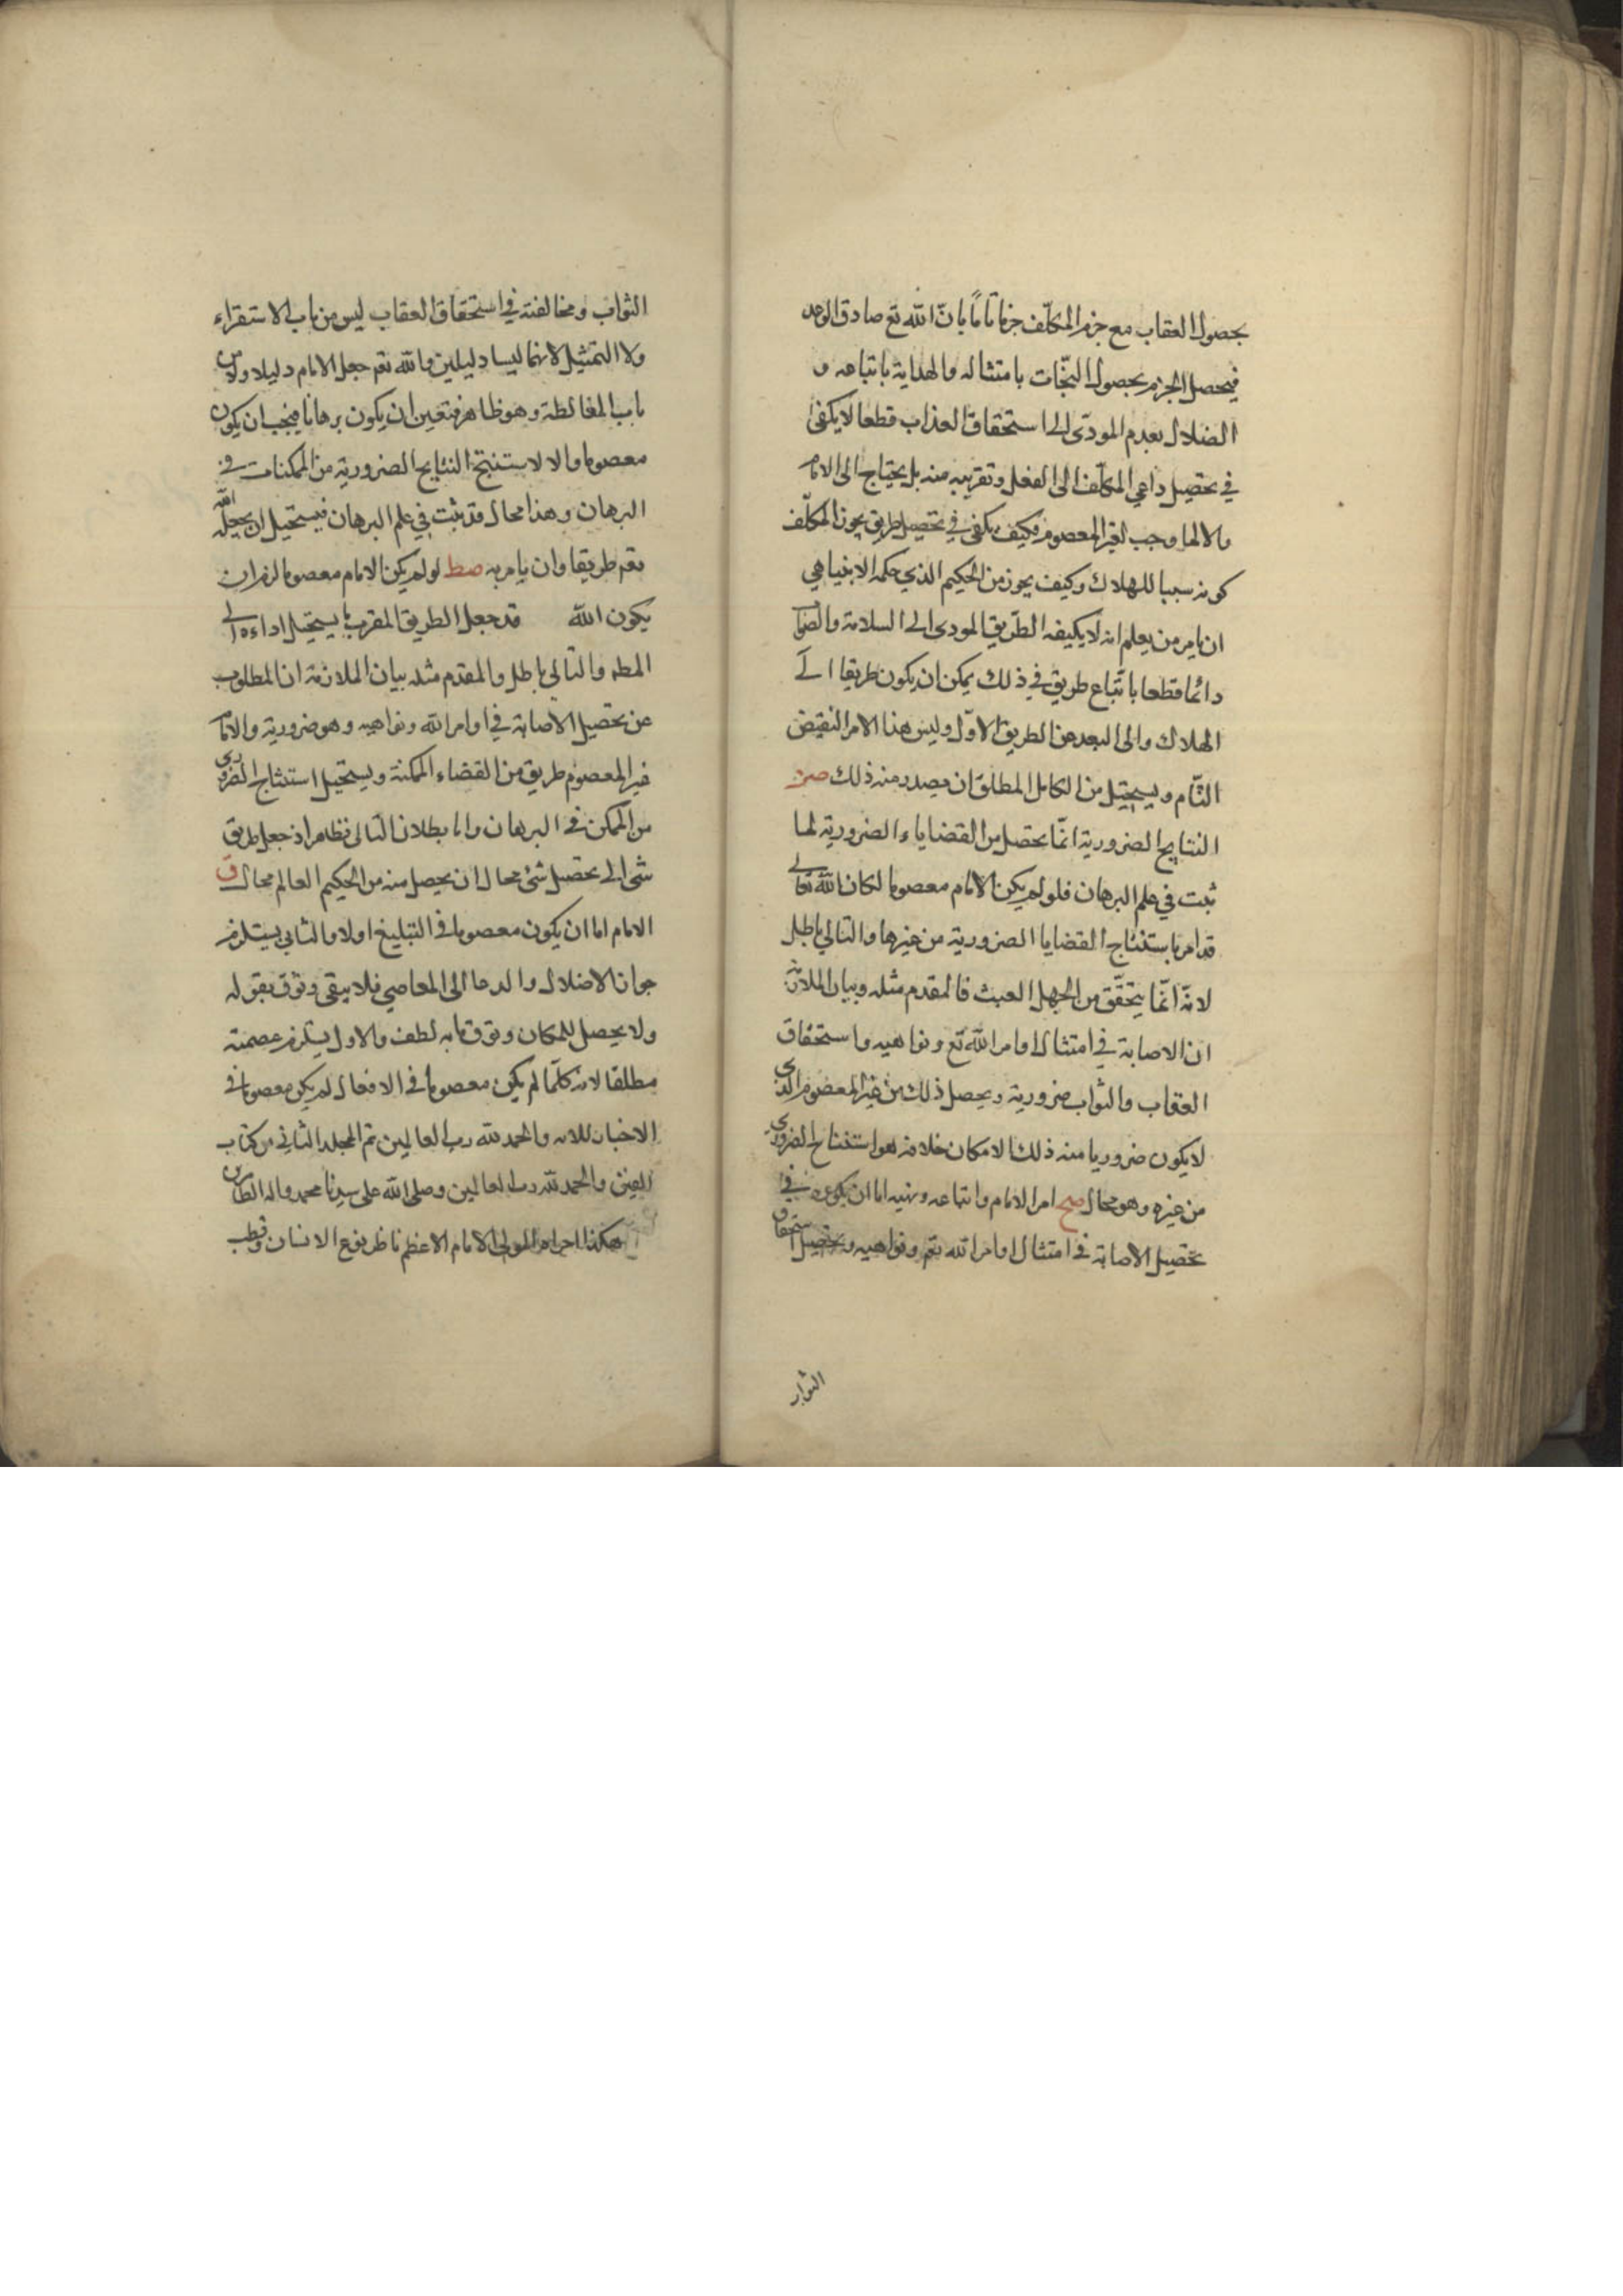 بحصول العقاب مع جزم المكلّف جزما تامّا بانّ الله تع صادق الوعد
فيحصل الجزم بحصول النجات بامتثاله والهداية باتباعه و
الضلال بعدم المودّى الى استحقاق العذاب قطعا لا يكفى
في تحصيل داعي المكلّف الى الفعل وتقريبه منه بل يحتاج الى الامام
والا لما وجب لغير المعصوم فكيف يكفى في تحصيل طريق يجوز المكلّف
كونه سببا للهلاك وكيف يجوز من الحكيم الذي حكمه لا يتناهي
ان يامر من يعلم انه لا يكيفه الطّريق المودى الى السلامة والصواب
دائما قطعا باتّباع طريق في ذلك يمكن ان يكون طريقا الى
الهلاك والى البعد عن الطريق الاوّل وليس هذا الامر النقيض
التّام ويستحيل من الكامل المطلق ان يصدر منه ذلك صز
النتايج الضرورية انّما يحصل من القضاياء الضرورية لما
ثبت في علم البرهان فلو لم يكن الامام معصوما لكان الله تعالى
قد امر باستنتاج القضايا الضرورية من غيرها والتالي باطل
لانّه انّما يتحقّق من الجهل العبث فالمقدم مثله وبيان الملازمة
ان الاصابة في امتثال اوامر الله تع ونواهيه واستحقاق
العقاب والثواب ضرورية ويحصل ذلك من غير المعصوم الذى
لا يكون ضروريا منه ذلك لامكان خلافه هو استنتاج الضرورى
من غيره وهو محال صح امر الامام واتباعه ونهيه اما ان يكون في
تحصيل الاصابة في امتثال اوامر الله تعم ونواهيه وتحصيل استحقاق
الثواب
الثواب ومخالفته في استحقاق العقاب ليس من باب الاستقراء
ولا التمثيل لانهما ليسا دليلين والله تعم جعل الامام دليلا ولا من
باب المغالطة وهو ظاهر فتعين ان يكون برهانا فيجب ان يكون
معصوما والا لاستنتج النتايج الضرورية من الممكنات في
البرهان وهذا محال قد ثبت في علم البرهان فيستحيل ان يجعل الله
تعم طريقا وان يامر به صط لو لم يكن الامام معصوما لزم ان
يكون الله قد جعل الطريق المقرب ما يستحيل اداءه الى
المطه والتالي باطل والمقدم مثله بيان الملازمة ان المطلوب
من تحصيل الاصابة في اوامر الله ونواهيه وهو ضرورية والامام
غير المعصوم طريق من القضاء الممكنة ويستحيل استنتاج الضرورى
من الممكن في البرهان واما بطلان التالى فظاهر اذ جعل طريق
شئ الى تحصيل شئ محال ان يحصل منه من الحكيم العالم محال ق
الامام اما ان يكون معصوما في التبليغ اولا والثاني يستلزم
جواز الاضلال والدعا الى المعاصي فلا يبقى وثوق بقوله
ولا يحصل للمكان وثوق مابه لطف والاول يستلزم عصمته
مطلقا لانه كلّما لم يكن معصوما في الافعال لم يكن معصوما في
الاخبار للانه والحمد لله رب العالمين تم المجلد الثانى من كتاب
الفين والحمد لله رب العالمين وصلى الله على سيدنا محمد واله الطاهرين
هكذا المولى الامام الاعظم ناظر نوع الانسان وقطب